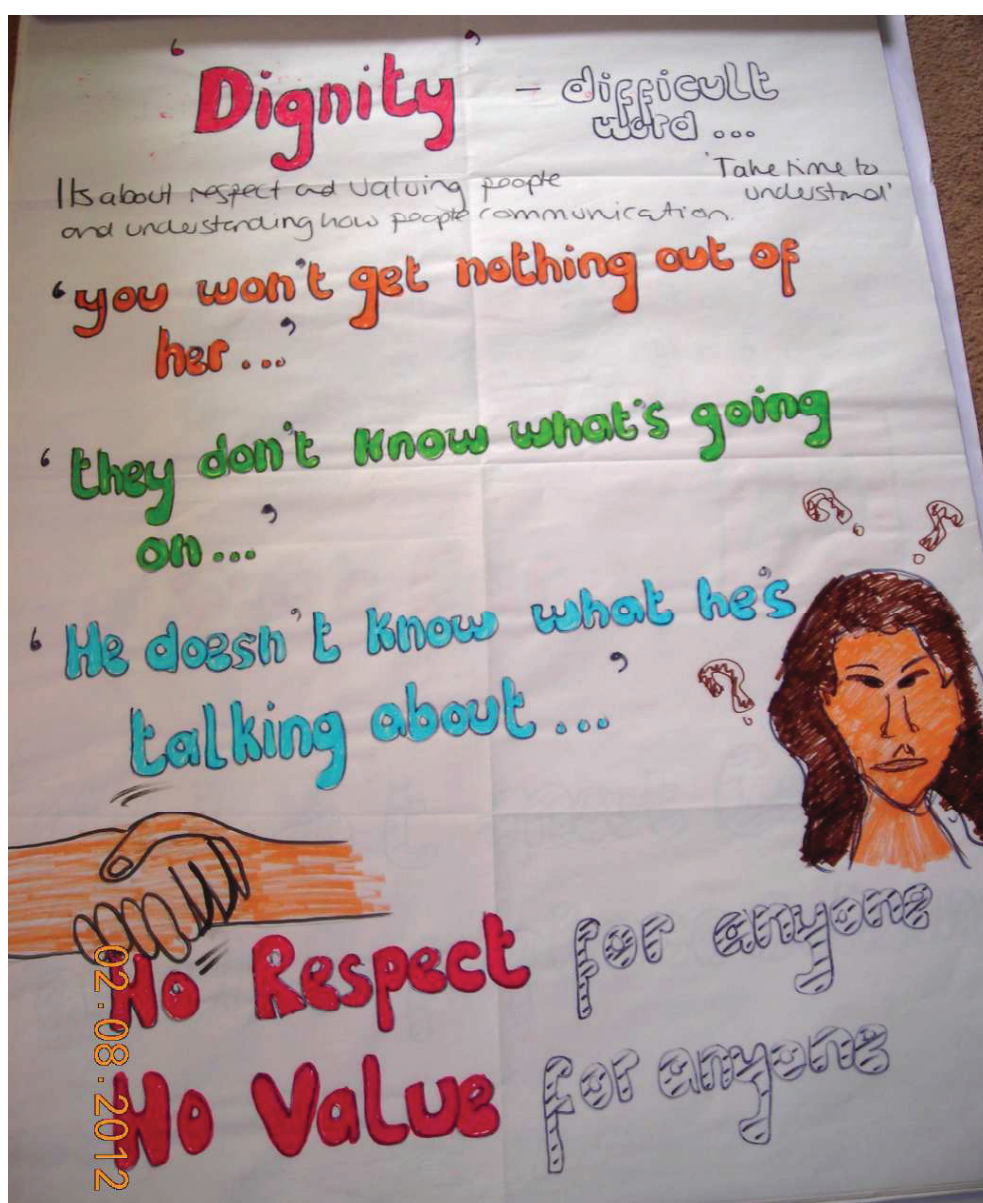 'Dignity' - difficult
word...
Its about respect and valuing people
and understanding how people communication.
'Take time to
understand'
'you won't get nothing out of
her...'
'they don't know what's going
on...'
'He doesn't know what he's
talking about...'
? ? ?
No Respect for anyone
No Value for anyone
02.08.2012